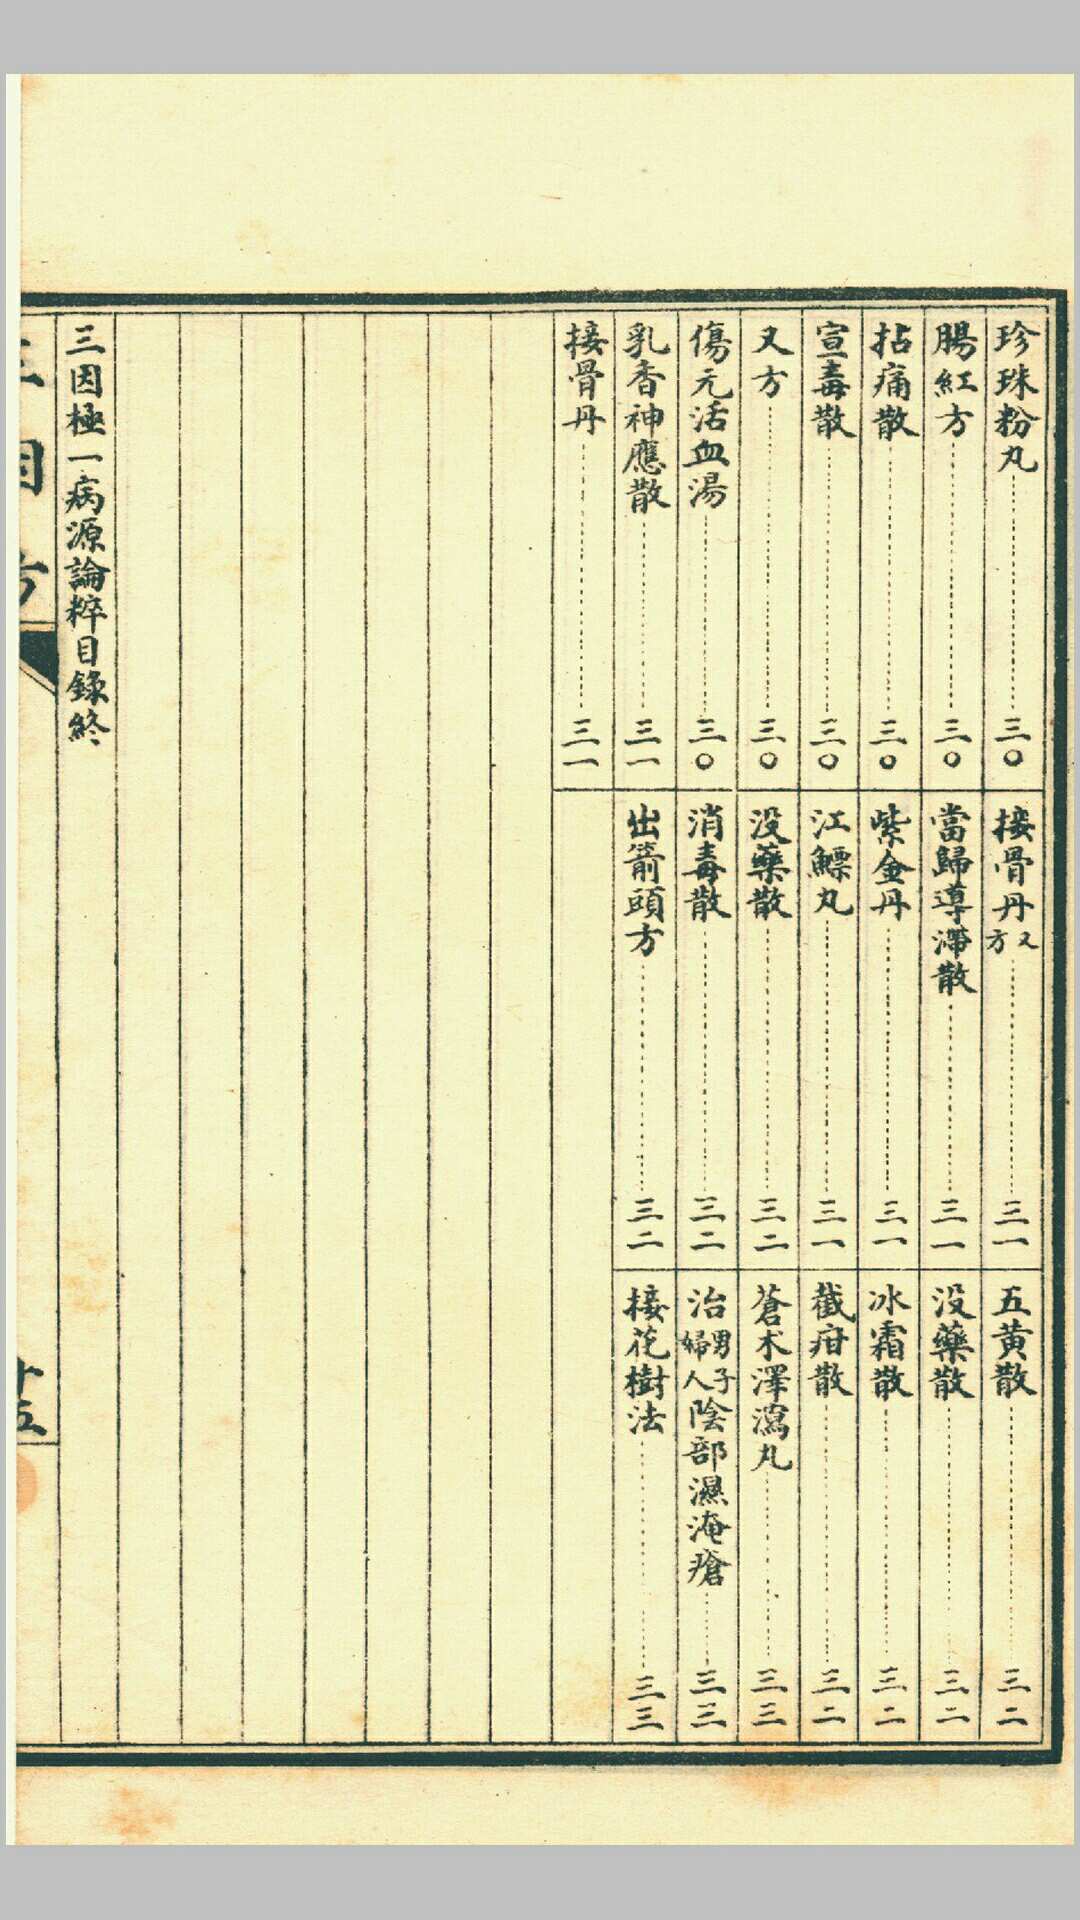 珍珠粉丸 三〇
腸紅方 三〇
拈痛散 三〇
宣毒散 三〇
又方 三〇
傷元活血湯 三〇
乳香神應散 三一
接骨丹 三一
接骨丹又方 三一
當歸導滯散 三一
紫金丹 三一
江鰾丸 三一
没藥散 三二
消毒散 三二
出箭頭方 三二
五黄散 三二
没藥散 三二
冰霜散 三二
截疳散 三二
蒼术澤瀉丸 三三
治男子婦人陰部濕淹瘡 三三
接花樹法 三三
三因極一病源論粹目錄終
三因方
十五